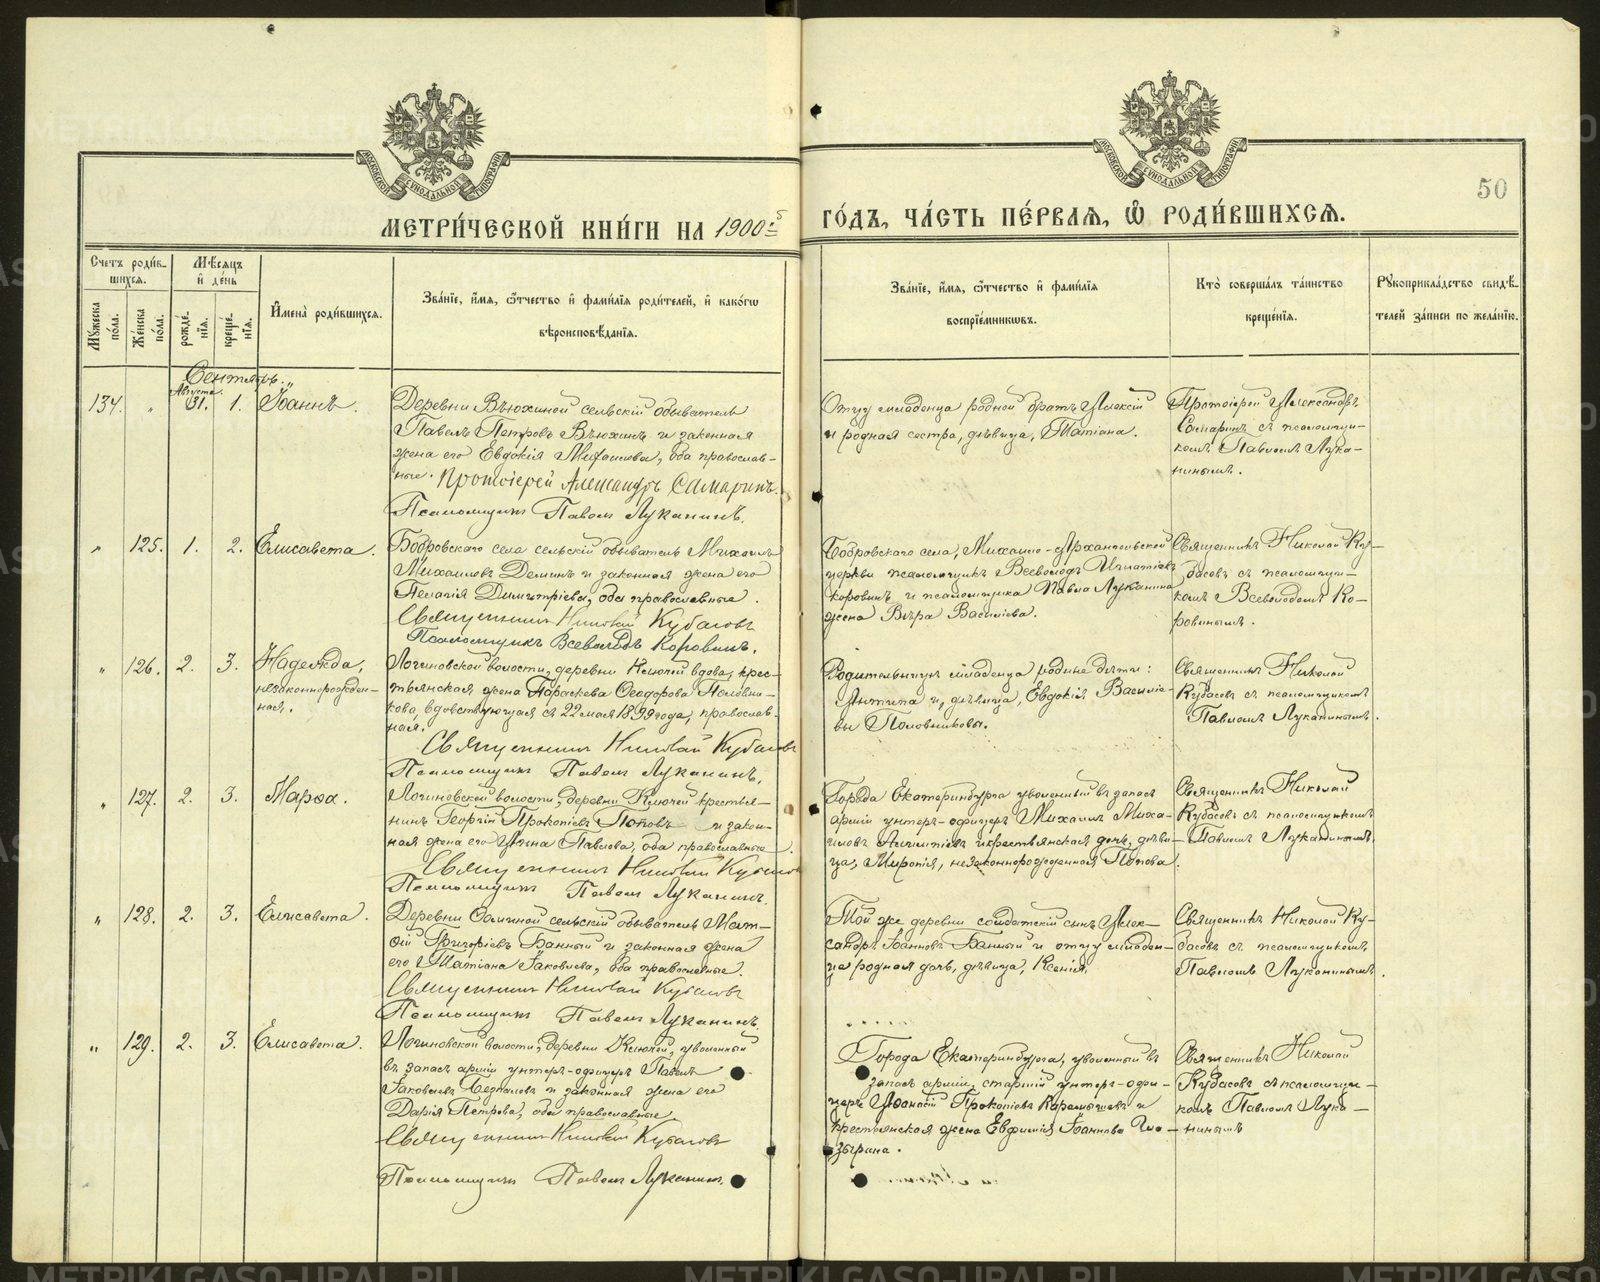 МЕТРИ́ЧЕСКОЙ КНИ́ГИ НА 1900й
ГО́ДЪ, ЧА́СТЬ ПЕ́РВАЯ, Ѿ РОДИ́ВШИХСЯ.
50
Счетъ роди́в-
шихся.
Му́жеска
по́ла.
Же́нска
по́ла.
Мѣ́сяцъ
и де́нь
рожде́-
нія.
креще́-
нія.
Имена̀ роди́вшихся.
Зва́ніе, и́мя, ѻ́тчество и фами́лія роди́телей, и како́гѡ
вѣроисповѣ́данія.
Зва́ніе, и́мя, ѻ́тчество и фами́лія
воспріе́мникѡвъ.
Кто̀ соверша́лъ та́инство
креще́нія.
Рукоприкла́дство свидѣ́-
телей за́писи по жела́нію.
Сентябрь.
134. " Августа 31. 1. Іоаннъ.
Деревни Вьюхиной сельскій обыватель
Павелъ Петровъ Вьюхинъ и законная
жена его Евдокія Михайлова, оба православ-
ные. Протоіерей Александръ Самаринъ.
Псаломщикъ Павелъ Луканинъ.
Отцу младенца родной братъ Алексій
и родная сестра, дѣвица, Татіана.
Протоіерей Александръ
Самаринъ съ псаломщи-
комъ Павломъ Лука-
нинымъ.
" 125. 1. 2. Елисавета.
Бобровскаго села сельскій обыватель Михаилъ
Михаиловъ Деминъ и законная жена его
Пелагія Димитріева, оба православные.
Священникъ Николай Кубасовъ
Псаломщикъ Всеволодъ Коровинъ.
Бобровскаго села, Михаило-Архангельской
церкви псаломщикъ Всеволодъ Игнатіевъ
Коровинъ и псаломщика Павла Луканина
жена Вѣра Василіева.
Священникъ Николай Ку-
басовъ съ псаломщи-
комъ Всеволодомъ Ко-
ровинымъ.
" 126. 2. 3. Надежда,
незаконнорожден-
ная.
Логиновской волости, деревни Ключей вдова, крес-
тьянская жена Параскева Ѳеодорова Половни-
кова, вдовствующая съ 22 мая 1899 года, православ-
ная.
Священникъ Николай Кубасовъ
Псаломщикъ Павелъ Луканинъ.
Родительницы младенца родные дѣти:
Антипа и, дѣвица, Евдокія Василіе-
вы Половниковы.
Священникъ Николай
Кубасовъ съ псаломщикомъ
Павломъ Луканинымъ.
" 127. 2. 3. Марѳа.
Логиновской волости, деревни Ключей крестья-
нинъ Георгій Прокопіевъ Поповъ и закон-
ная жена его Анна Павлова, оба православные.
Священникъ Николай Кубасовъ
Псаломщикъ Павелъ Луканинъ.
Города Екатеринбурга уволенный въ запасъ
арміи унтеръ-офицеръ Михаилъ Миха-
иловъ и крестьянская дочь, дѣви-
ца, Миропія, незаконнорожденная Попова.
Священникъ Николай
Кубасовъ съ псаломщикомъ
Павломъ Луканинымъ.
" 128. 2. 3. Елисавета.
Деревни сельскій обыватель Мат-
ѳій Григоріевъ Банный и законная жена
его Татіана Іаковлева, оба православные.
Священникъ Николай Кубасовъ
Псаломщикъ Павелъ Луканинъ.
Той же деревни солдатскій сынъ Алек-
сандръ Іоанновъ Банный и отцу младен-
ца родная дочь, дѣвица, Ксенія.
Священникъ Николай Ку-
басовъ съ псаломщикомъ
Павломъ Луканинымъ.
" 129. 2. 3. Елисавета.
Логиновской волости, деревни Ключей, уволенный
въ запасъ арміи унтеръ-офицеръ Павелъ
Іаковлевъ и законная жена его
Дарія Петрова, оба православные.
Священникъ Николай Кубасовъ
Псаломщикъ Павелъ Луканинъ.
Города Екатеринбурга, уволенный въ
запасъ арміи, старшій унтеръ-офи-
церъ Аѳанасій Прокопіевъ Карамышевъ и
крестьянская жена Евфимія Іоаннова
Священникъ Николай
Кубасовъ съ псаломщи-
комъ Павломъ Лука-
нинымъ
METRIKI.GASO-URAL.RU